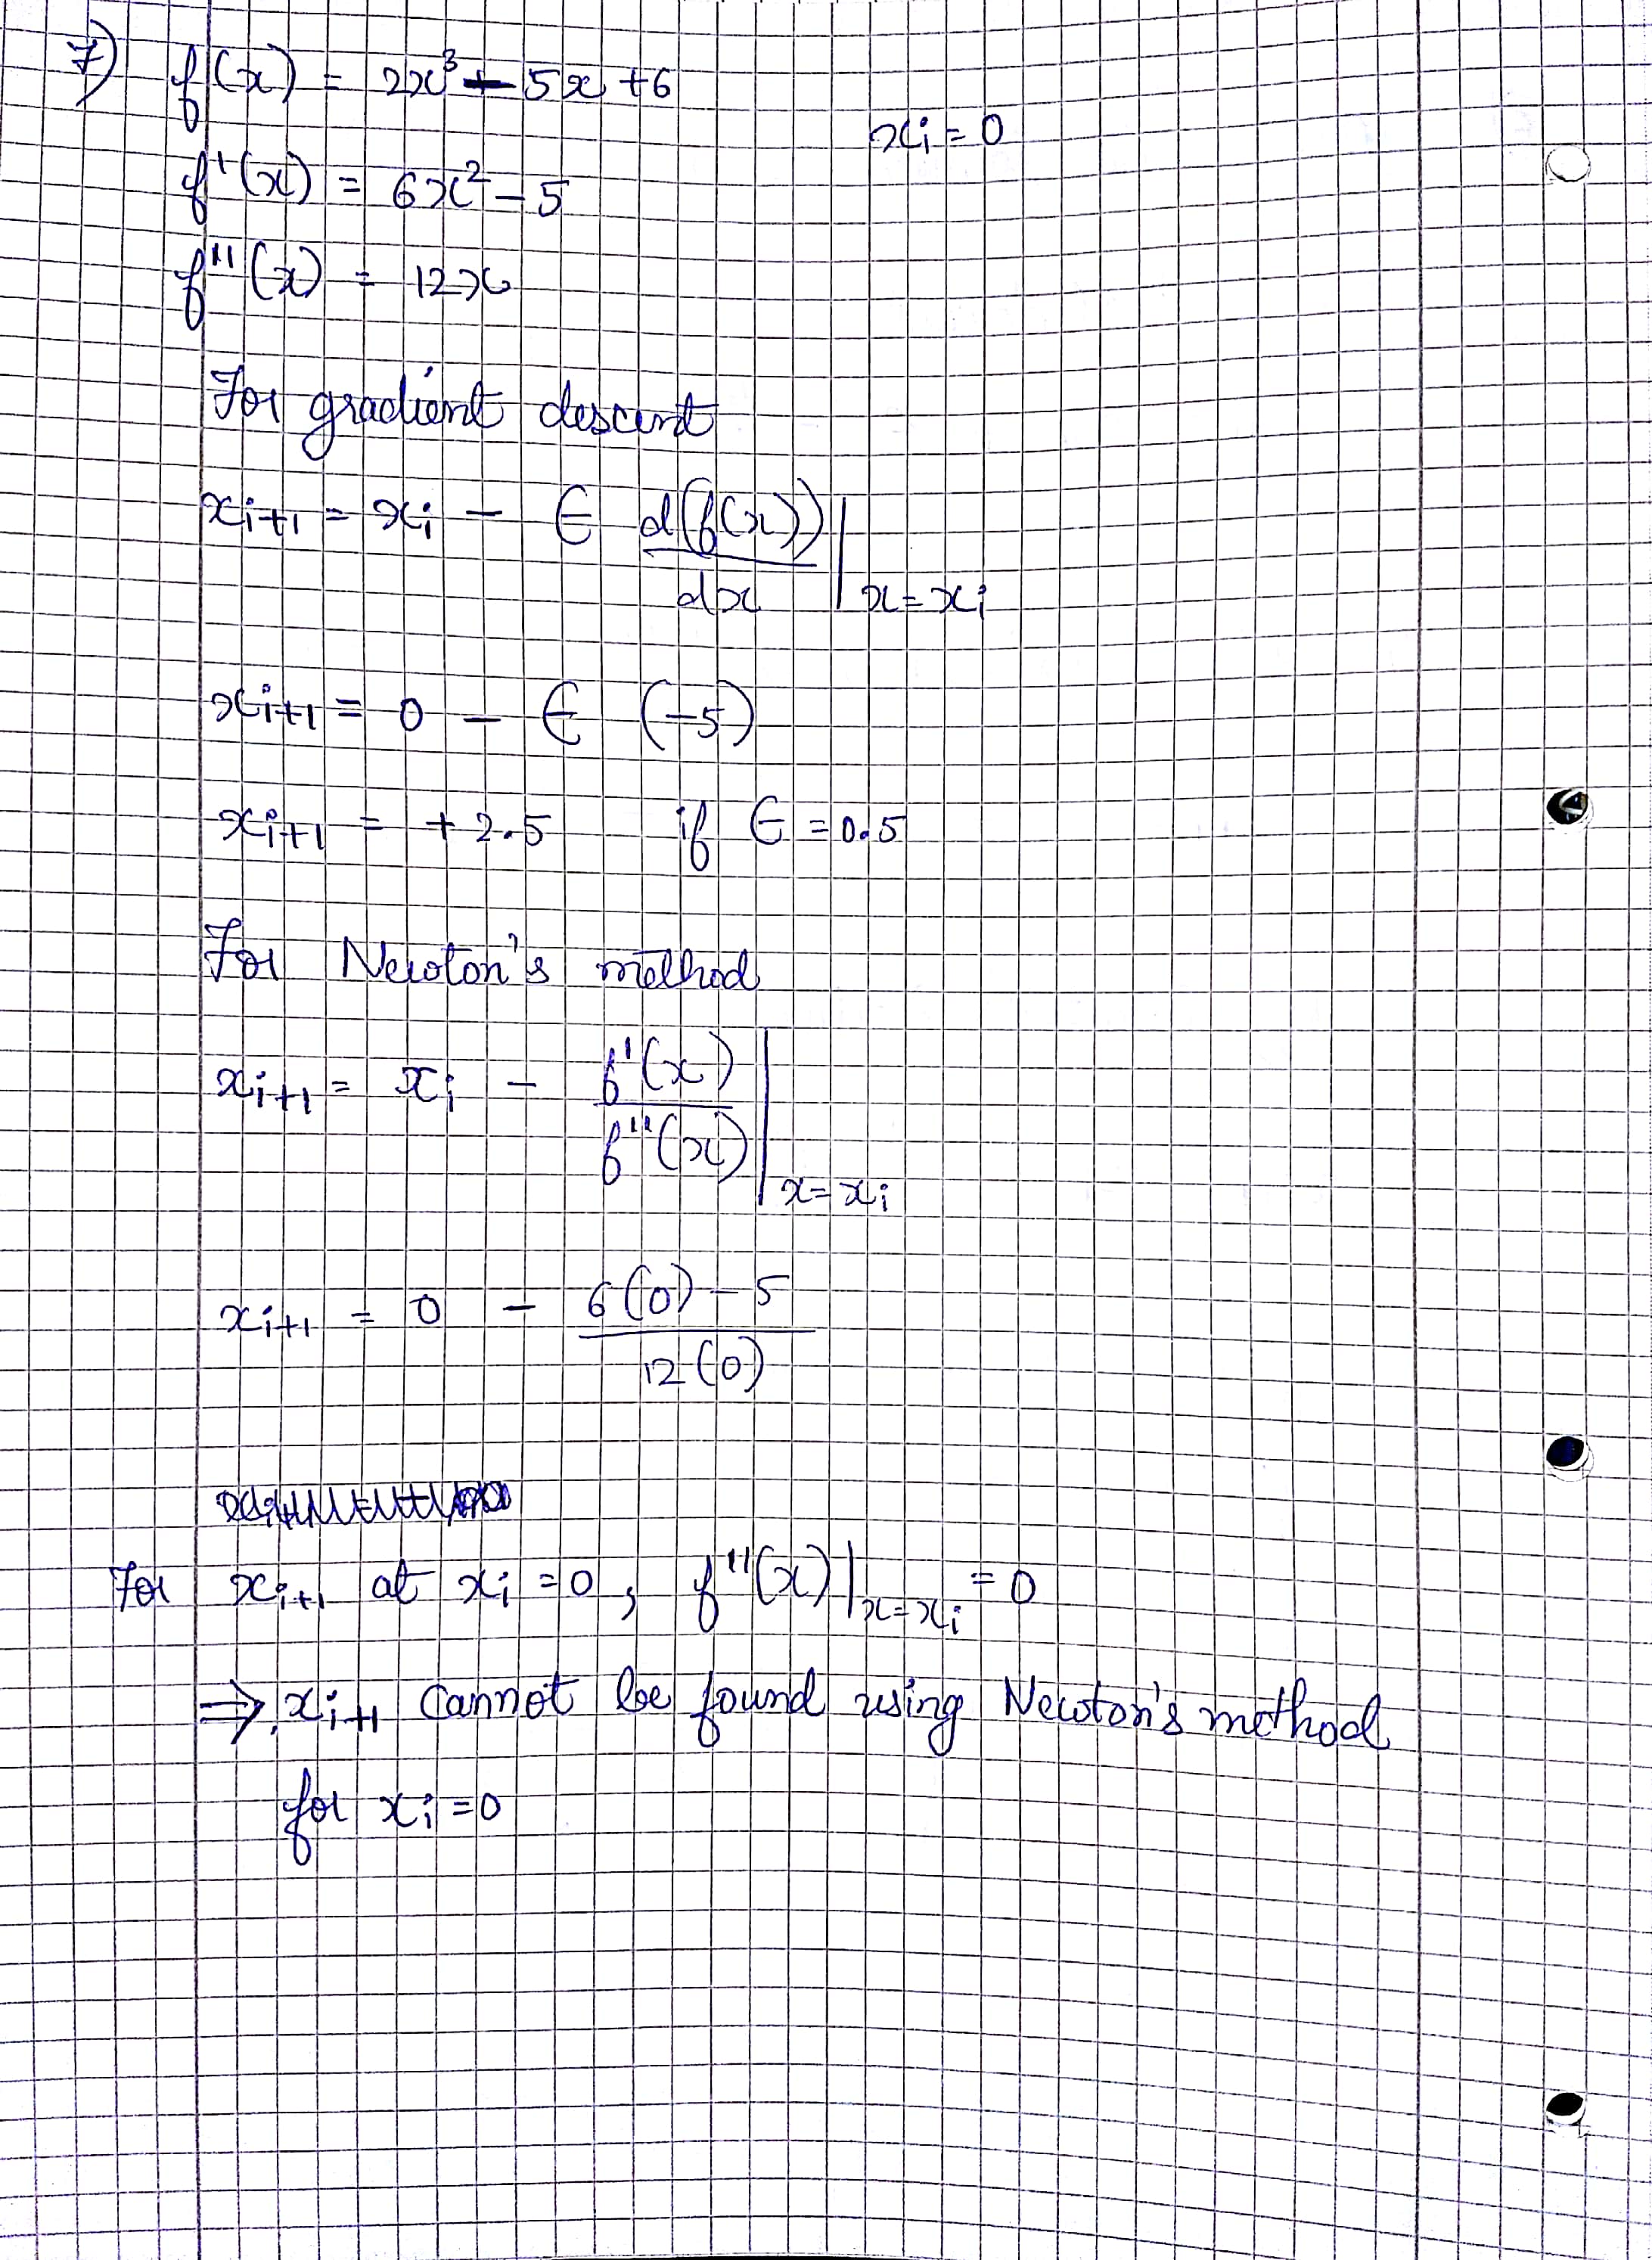 7) f(x) = 2x³ - 5x + 6
xi = 0
f'(x) = 6x² - 5
f''(x) = 12x
For gradient descent
xi+1 = xi - ∈ d(f(x))/dx |x=xi
xi+1 = 0 - ∈ (-5)
xi+1 = +2.5 if ∈ = 0.5
For Newton's method
xi+1 = xi - f'(x)/f''(x) |x=xi
xi+1 = 0 - 6(0) - 5/12(0)
For xi+1 at xi = 0, f''(x)|x=xi = 0
⇒ xi+1 cannot be found using Newton's method
for xi = 0